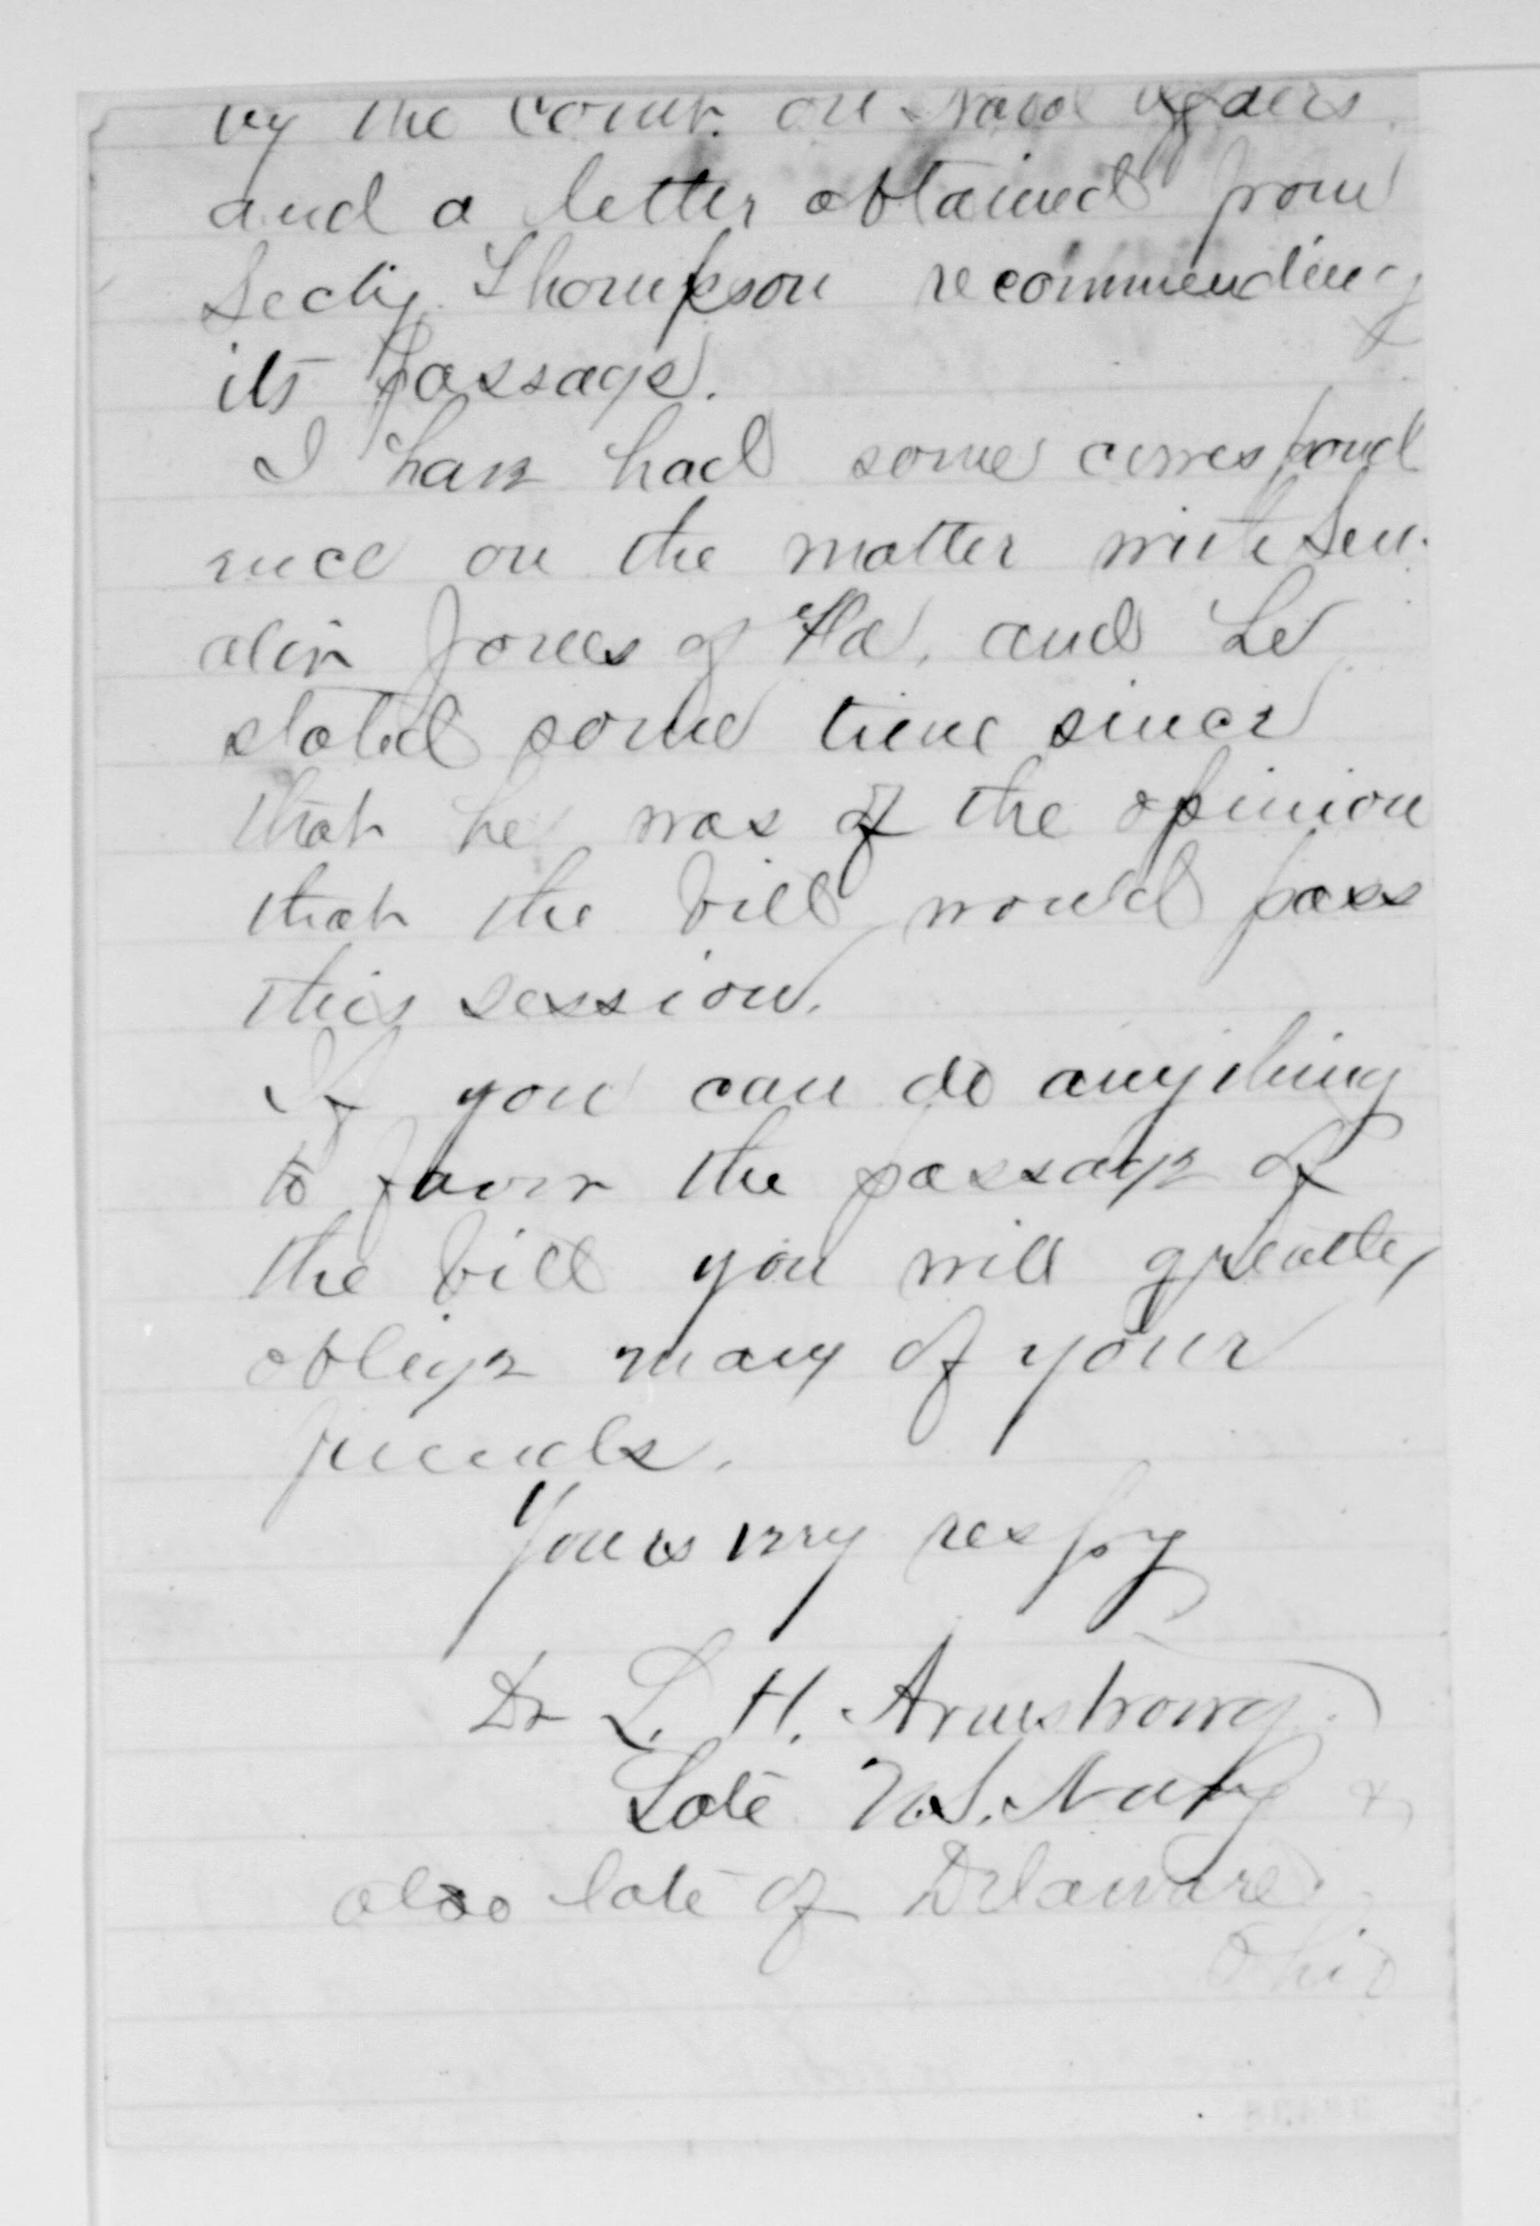 by the Comt. on Naval affairs
and a letter obtained from
Secty. Thompson recommending
its passage.
I have had some correspond
ence on the matter with Sen-
ator Jones of Fla, and he
stated some time since
that he was of the opinion
that the bill would pass
this session.
If you can do anything
to favor the passage of
the bill you will greatly
oblige many of your
friends.
Yours very respy
Dr L. H. Armstrong
Late U.S. Navy &
also late of Delaware
Ohio